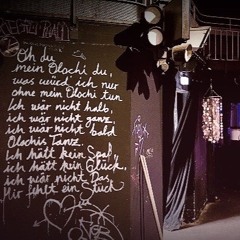 Oh du
mein Olochi du,
was würd ich nur
ohne mein Olochi tun
Ich wär nicht halb,
ich wär nicht ganz,
ich wär nicht bald
Olochis Tanz.
Ich hätt kein Spaß
ich hätt kein Glück,
ich wär nicht Das,
Mir fehlt ein Stück